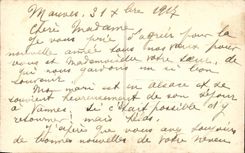 Mauves, 31 Xbre 1917
Chère Madame,
Je vous prie d'agréer pour la
nouvelle année tous nos vœux pour
vous et Mademoiselle votre sœur, de
qui nous gardons un si bon
souvenir.
Mon mari est en Alsace et se
souvient heureusement de son séjour
à Vannes, de possible et y
retourner mais
J'espère que vous avez toujours
de bonnes nouvelles de votre neveu